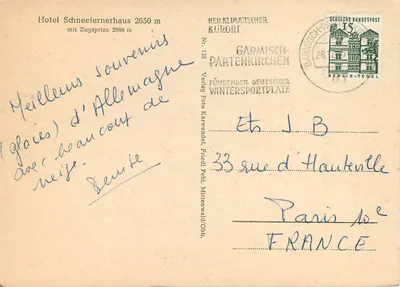 Hotel Schneefernerhaus 2650 m
mit Zugspitze 2966 m
Meilleurs souvenirs
(glacés) d'Allemagne
avec beaucoup de
neige.
Denise
Nr. 125 Verlag Foto Karwendel, Friedl Pohl, Mittenwald/Obb.
HEILKLIMATISCHER
KURORT
GARMISCH-
PARTENKIRCHEN
FÜHRENDER DEUTSCHER
WINTERSPORTPLATZ
GARMISCH-
DEUTSCHE BUNDESPOST
15
BERLIN-TEGEL
Ets J B
33 rue d'Hauteville
Paris 10e
FRANCE